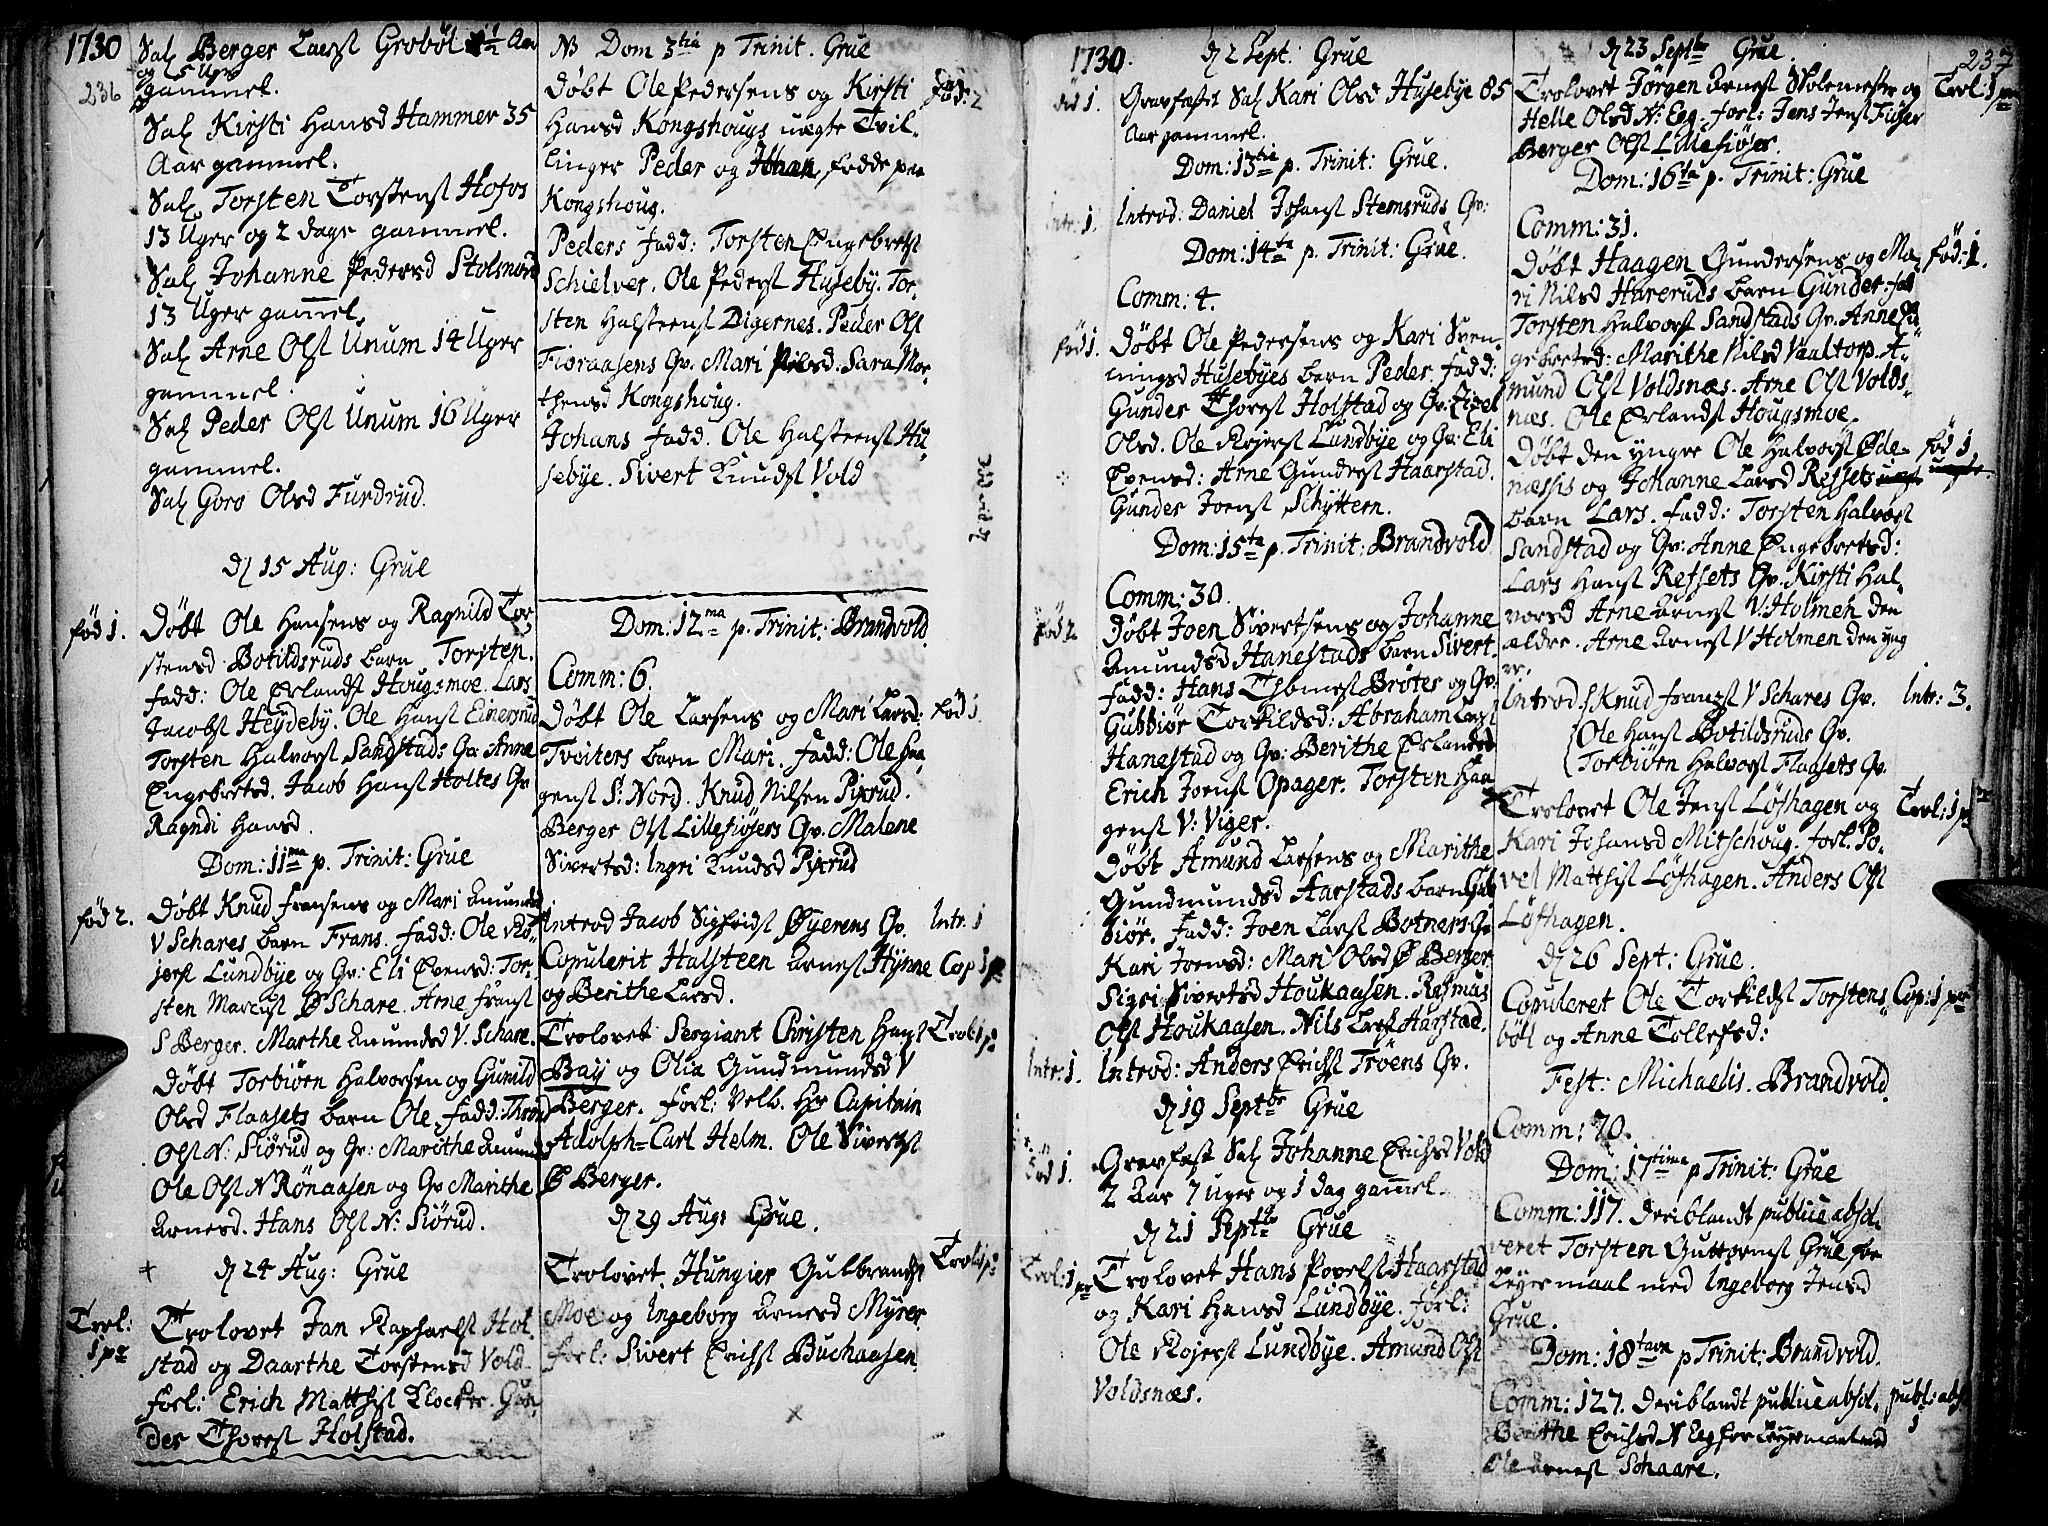 1730
236
Sal Berger Larsst Grobøl 1/2 Aar
og 5 Uger
gammel.
Sal Kirsti Hansd Hammer 35
Aar gammel.
Sal Torsten Torstenst Hofos
13 Uger og 2 dage gammel.
Sal Johanne Pedersd Stolsnord
13 Uger gamel.
Sal Arne Olst Unum 14 Uger
gammel.
Sal Peder Olst Unum 16 Uger
gammel.
Sal Goro Olsd Furdrud.
d 15 Aug: Grue
fød 1.
Døbt Ole Hansens og Ragnild Tor-
stensd Botildsruds barn Torsten.
fadd: Ole Erlandst Hougsmoe. Lars
Jacobst Heydeby. Ole Hanst Einersrud
Torsten Halvorst Sandstad: Qv: Anne
Engebretsd. Jacob Hanst Holtes Qv
Ragndi Hansd.
Dom: 11ma p. Trinit: Grue
fød 2.
Døbt Knud Fransens og Mari Amundsd
V Schares barn Frans. fadd: Ole Ro-
jerst Lundbye og Qv: Eli Evensd: Tor-
sten Marcust Ø Schare. Arne Franst
S Berger. Marthe Amundsd V. Schare.
Døbt Torbiørn Halvorsen og Gunild
Olsd Flaasets barn Ole, fadd: Thrond
Olst N: Siørud og Qv: Marithe Amundsd
Ole Olst N Rönaasen og Qv Marithe
Arnesd. Hans Olst N: Siørud.
d 24 Aug: Grue
Trol:
1 pr
Trolovet Jan Raphaelst Hol-
stad og Daarthe Torstensd Vold.
forl: Erich Matthist Klocker. Gun-
der Thorest Holstad.
NB Dom 3tia p Trinit. Grue
Fød: 2
Døbt Ole Pedersens og Kirsti
Hansd Kongshougs uægte Tvil-
linger Peder og Johan, fødde paa
Kongshoug.
Peders fadd: Torsten Engebretst
Schielver. Ole Pederst Huseby. Tor-
sten Halsteenst Digernes. Peder Olst
Fioraasens Qv. Mari Nilsd. Sara Mor-
thensd Kongshoug.
Johans fadd. Ole Halsteenst Hu-
sebye. Sivert Knudst Vold
Dom: 12ma p. Trinit: Brandvold
Comm: 6.
fød 1
Døbt Ole Larsens og Mari Larsd:
Tvøiters barn Mari. fadd: Ole Haa-
genst S: Nord. Knud Nilsen Pixrud.
Berger Olst Lillesiøers Qv. Malene
Sivertsd: Ingri Knudsd Pixrud
Intr: 1
Introd Jacob Sigfridst Øyerens Qv.
Copulerit Halsteen Arnest Hynne Cop 1 p
og Berithe Larsd.
Trolovet Sergiant Christen Hanst Trol: 1 p:
Bay og Olia Gundmundsd V
Berger. forl: Velb. Hr Capitain
Adolph=Carl Helm. Ole Sivertst
Ø Berger.
d 29 Aug: Grue.
Trol: 1 p:
Trolovet. Hungier Gulbrandst
Moe og Ingeborg Arnesd Myrer
forl: Sivert Erichst Buchaasen.
1730.
d 2 Sept: Grue
død 1.
Gravfæstet Sal Kari Olsd Husebye 85
Aar gammel.
Dom: 13tia p. Trinit: Grue.
Intr: 1.
Introd: Daniel Johanst Stemsruds Qv:
Dom: 14ta p. Trinit: Grue.
Comm: 4.
fød 1.
Døbt Ole Pedersens og Kari Sven-
ningsd Husebyes barn Peder fadd:
Gunder Thorest Holstad og Qv: Zidel
Olsd. Ole Rojerst Lundbye og Qv: Eli
Evensd: Arne Gundrest Haarstad.
Gunder Joenst Schyttern.
Dom: 15ta p. Trinit: Brandvold
Comm: 30.
fød 2
Døbt Joen Sivertsens og Johanne
Amundsd Hanestads barn Sivert.
fadd: Hans Thomest Brøter og Qv:
Gubbiør Torkildsd: Abraham Larst
Hanestad og Qv: Berithe Erlandsd
Erich Jornst Opager. Torsten Haa
genst V: Viger.
Døbt Amund Larsens og Marithe
Gundmundsd Aarstads barn Gub
biør. fadd: Joen Larst Botners Qv
Kari Joensd: Mari Olsd Ø Berger
Sigri Sivertsd Houkaasen. Rasmus
Olst Houkaasen. Nils Larst Aarstad.
Intr: 1.
Introd: Anders Erichst Trøens Qv.
d 19 Septbr Grue
død 1.
Gravfæst Sal Johanne Erichsd Vold
2 Aar 7 uger og 1 dag gamel.
d 21 Septbr Grue
Trol: 1 pr
Trolovet Hans Povelst Haarstad
og Kari Hansd Lundbye. forl:
Ole Rojerst Lundbye. Amund Olst
Voldsnæs.
d 23 Septbr Grue.
237
Trol: 1 pr
Trolovet Jørgen Arnest Skolemester og
Helle Olsd N: Eeg. forl: Jens Jenst Fuser
Berger Olst Lillesiøer.
Dom: 16ta p. Trinit: Grue
Comm: 31.
fød: 1.
Døbt Haagen Gundersens og Ma-
ri Nilsd Hareruds barn Gunder. fad
Torsten Halvorst Sandstads Qv. Anne En-
gebretsd: Marithe Nilsd Vaaltorp. A-
mund Olst Voldsnæs. Arne Olst Volds-
næs. Ole Erlandst Hougsmoe.
fød 1
Døbt den yngre Ole Halvorst Øde-
næssis og Johanne Larsd Refsets uægte
barn Lars. fadd: Torsten Halvorst
Sandstad og Qv: Anne Engebretsd:
Lars Hanst Refsets Qv. Kirsti Hal-
vorsd Arne Arnest V: Holmen den
ældre. Arne Arnest V Holmen den yng
re.
Intr: 3.
Introd. Knud Franst V Schares Qv.
Ole Hanst Botildsruds Qv.
Torbiøen Halvorst Flaasets Qv.
Trol: 1 pr
Trolovet Ole Jenst Løfhagen og
Kari Johansd Mitschoug. forl. Po-
vel Matthist Løfhagen. Anders Olst
Løfhagen.
d 26 Sept: Grue.
Cop: 1 pr
Copuleret Ole Torkildst Torstens-
bøl og Anne Tollefsd:
Fest: Michaelis. Brandvold.
Comm: 70.
Dom: 17tima p Trinit: Grue
Comm: 117. Deriblandt publice absol-
veret Torsten Guttormst Grue for
Leyermaal med Ingeborg Jensd
Grue.
Dom: 18tava p Trinit: Brandvold.
publ: abs: 1
Comm: 127. Deriblandt publice absol.
Berithe Erichsd N Eeg for Leyermaal med
Ole Arnest Schaare.